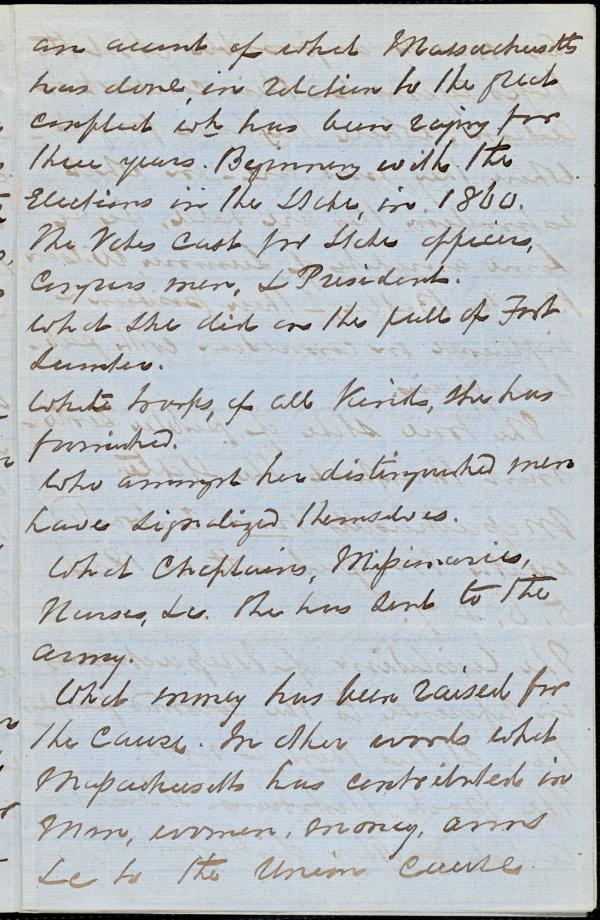 an account of what Massachusetts
has done, in relation to the great
conflict wh has been raging for
three years. Beginning with the
Elections in the State, in 1860.
The Votes Cast for State officers,
Congress men, & President.
What she did on the fall of Fort
Sumter.
What troops, of all Kinds, she has
furnished.
Who amongst her distinguished men
have Signalized themselves.
What Chaplains, Missionaries,
Nurses, &c. she has sent to the
army.
What money has been raised for
the Cause. In other words what
Massachusetts has contributed in
Men, women, money, arms
&c to the Union Cause